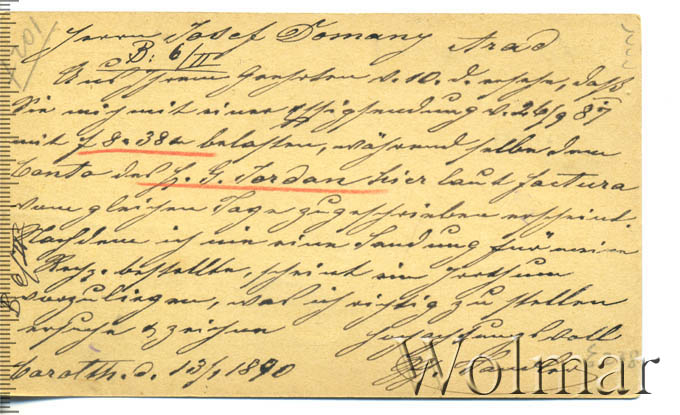 Herrn Josef Domany Arad
B: 6/II
Aus Ihrem Geehrten v. 10. d. ersehe, daß
Sie mich mit einer Essigsendung v. 26/9 87
mit f 8.38 belasten, während selbe dem
Conto des H. G. Jordan hier laut factura
vom gleichen Tage zugeschrieben erscheint.
Nachdem ich nie eine Sendung für meine
Rechg. bestellte, scheint ein Irrthum
vorzuliegen, was ich richtig zu stellen
ersuche & zeichne
hochachtungsvoll
d. 13/1 1890
Wolmar